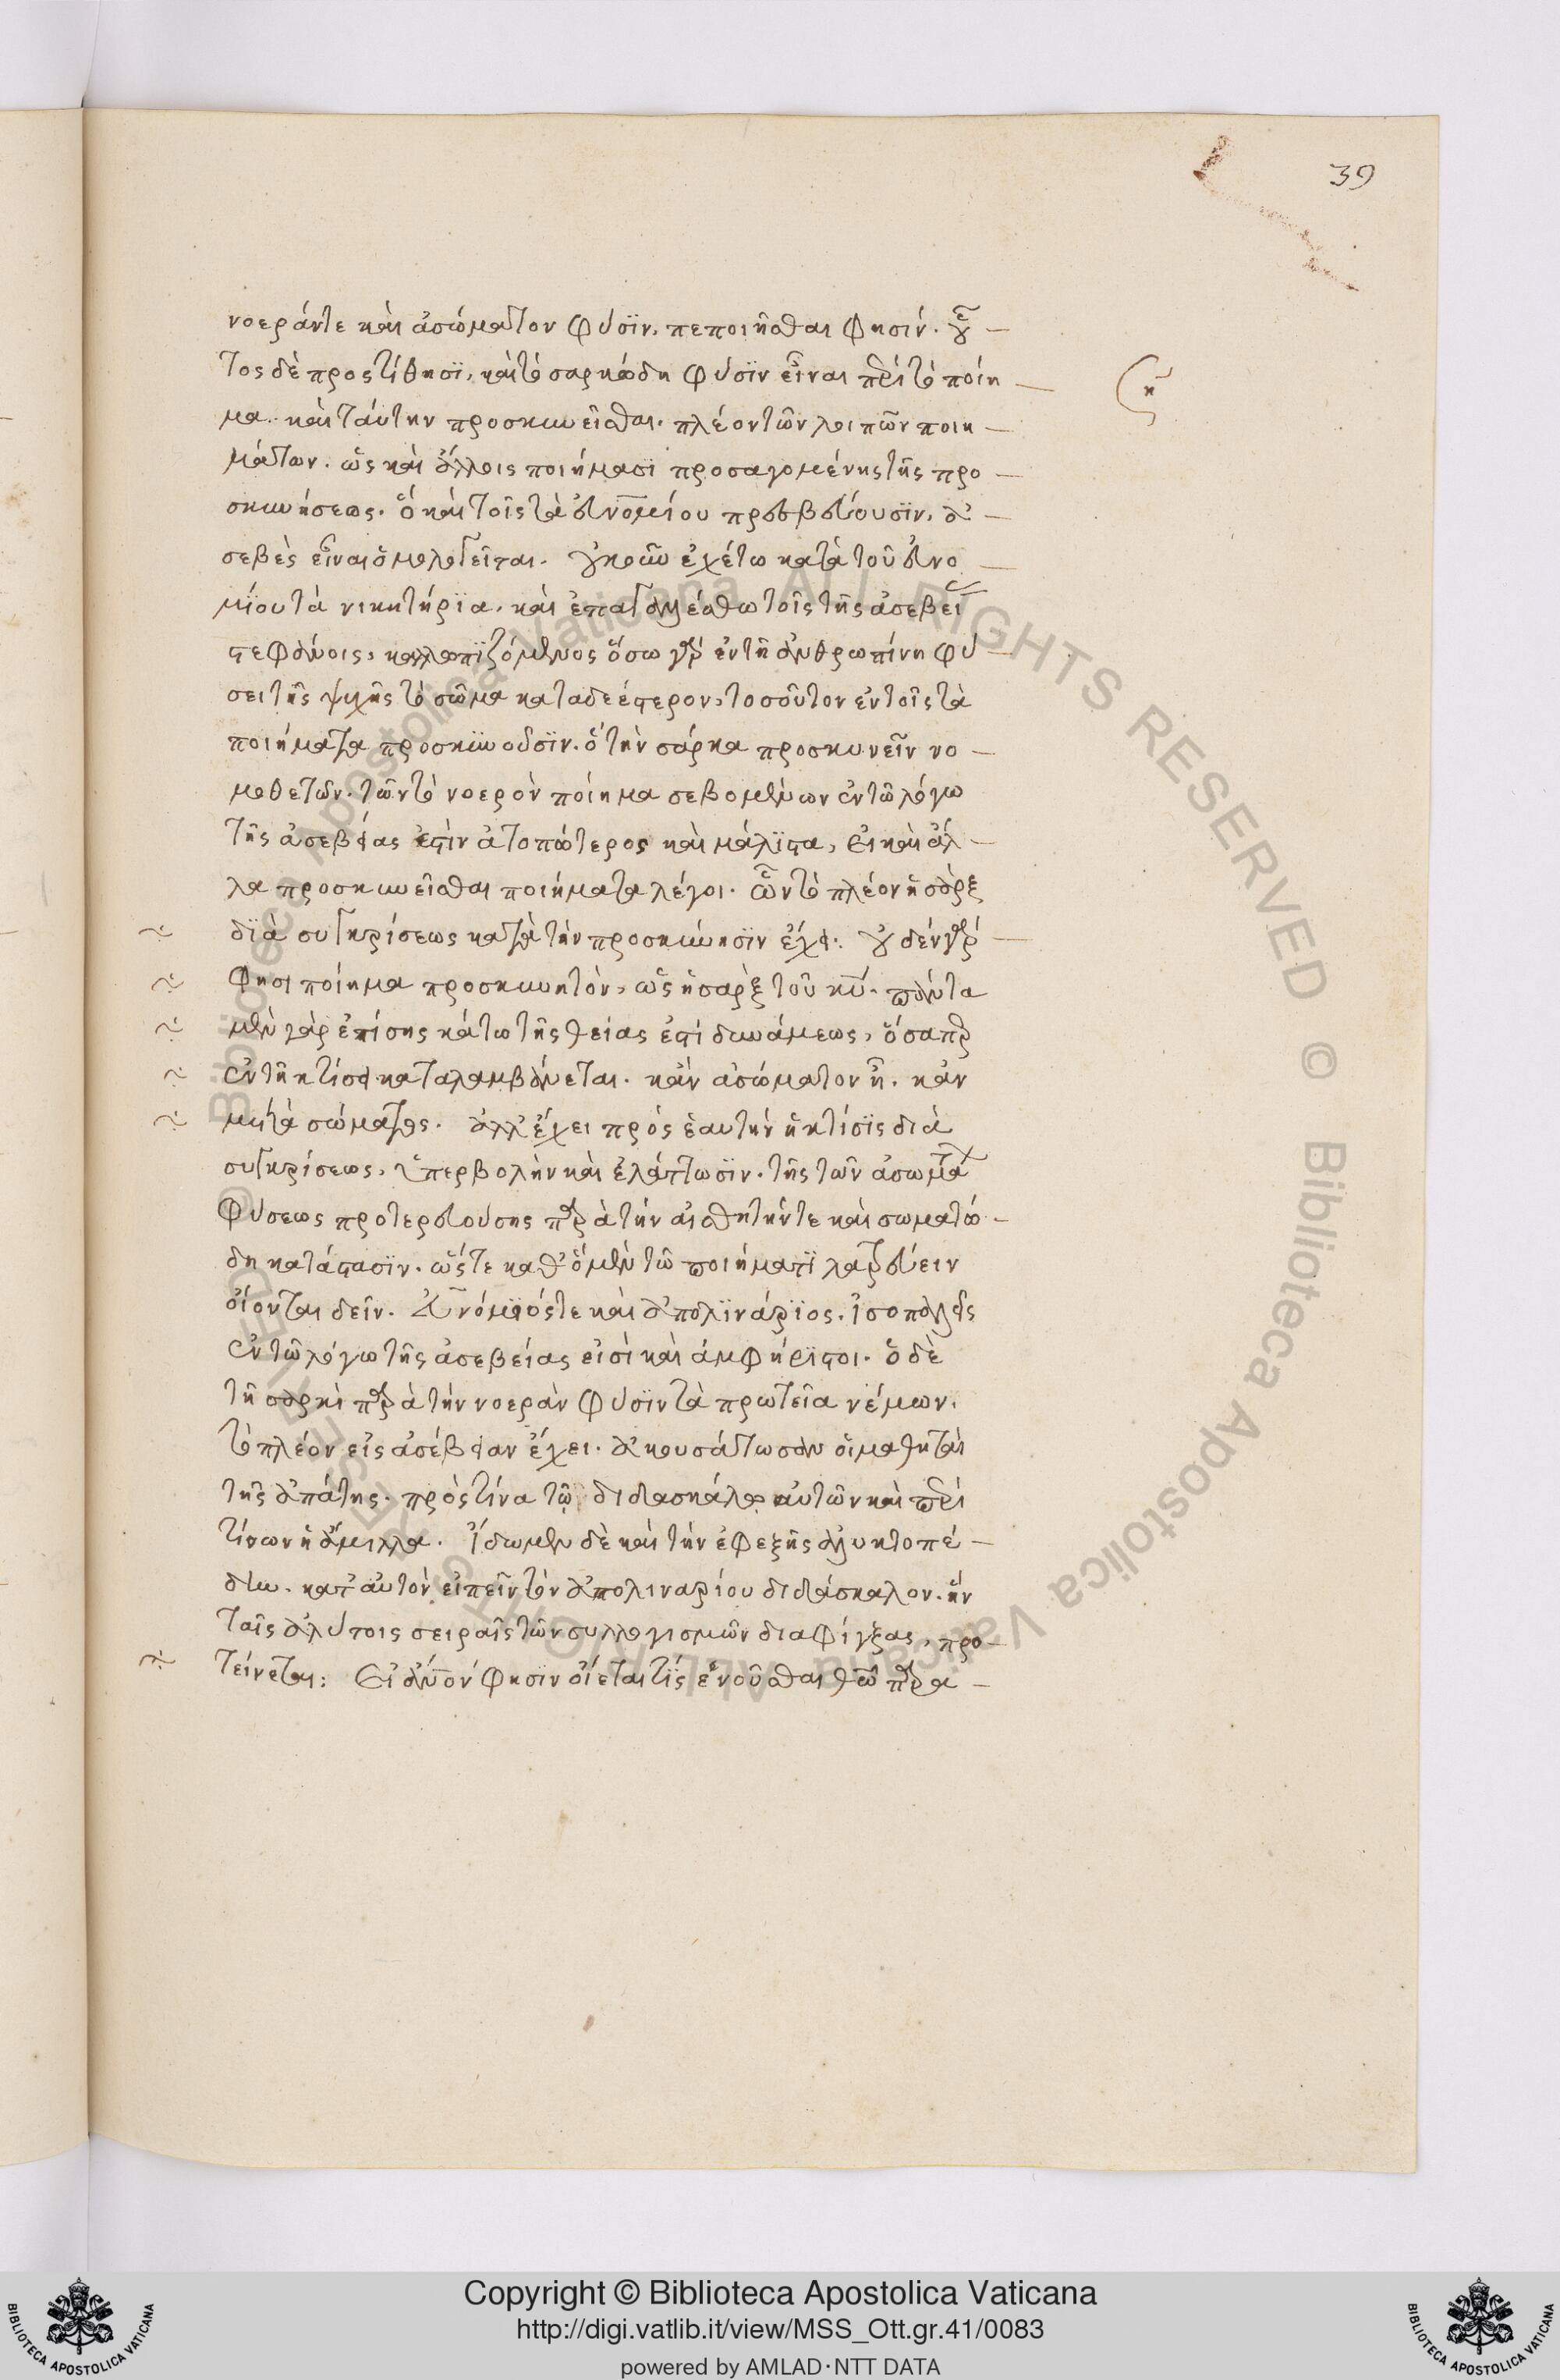 39
νοεράντε και ἀσώματον φύσϊν, πεποιῆσθαι φησίν. οὗ
τος δὲ προςτίθησϊ, και τὸ σαρκώδη φύσϊν εἶναι περὶ τὸ ποίη
μα. και ταύτην προσκυνεῖσθαι. πλέον τῶν λοιπῶν ποιη
μάτων. ὡς και ἄλλοις ποιήμασϊ προσαγομένης τῆς προ
σκυνήσεως. ὅ και τοῖς τὰ εὐνομίου πρεσβεύουσϊν, ἀ
σεβὲς εἶναι ὁμολογεῖται. οὐκοῦν ἐχέτω κατὰ τοῦ εὐνο
μΐου τὰ νικητήρϊα. και ἐπαγαλλέσθω τοῖς τῆς ἀσεβεί
στεφάνοις, καλλωπϊζόμενος ὅσω γὰρ ἐν τῆ ἀνθρωπίνη φύ
σει τῆς ψυχῆς τὸ σῶμα καταδεέστερον, τοσοῦτον ἐν τοῖς τὰ
ποιήματα προσκϋνοῦσϊν. ὁ τὴν σάρκα προσκυνεῖν νο
μοθετῶν. τῶν τὸ νοερὸν ποίημα σεβομένων ἐν τῶ λόγω
τῆς ἀσεβείας ἐστὶν ἀτοπώτερος και μάλϊστα, εἰ και ἀλ
λα προσκυνεῖσθαι ποιήματα λέγοι. ὧν τὸ πλέον ἡ σὰρξ
δϊὰ συγκρίσεως κατὰ τὴν προσκύνησϊν ἔχει. οὐδέν γάρ
φησι ποίημα προσκυνητὸν, ὡς ἡ σαρὲξ τοῦ κυ. πάντα
μὲν γὰρ ἐπίσης κάτω τῆς θείας ἐστὶ δυνάμεως, ὅσαπερ
ἐν τῆ κτίσει καταλαμβάνεται. κἀν ἀσώματον ἦ. κἀν
μετὰ σώματος. ἀλλ' ἔχει πρός ἑαυτήν ἡ κτίσϊς διὰ
συγκρίσεως, ὑπερβολὴν και ἐλάττωσϊν. τῆς τῶν ἀσωμάτ
φύσεως προτερευούσης παρὰ τὴν αἰσθητήντε και σωματώ
δη κατάστασϊν. ὥςτε καθ' ὁ μὲν τῶ ποιήματϊ λατρεύειν
οἴονται δεῖν. Εὐνόμϊόςτε και ἀπολϊνάρϊος. ἰσοπαλεῖς
ἐν τῶ λόγω τῆς ἀσεβείας εἰσὶ και ἀμφήρϊστοι. ὁ δὲ
τῆ σαρκὶ παρὰ τὴν νοερὰν φύσϊν τὰ πρωτεῖα νέμων.
τὸ πλέον εἰς ἀσέβειαν ἔχει. ἀκουσάτωσαν οἱ μαθηταὶ
τῆς ἀπάτης. πρὸς τίνα τῷ διδασκάλῳ αὐτῶν και περὶ
τίνων ἡ ἅμιλλα. Ἴδωμεν δὲ και τὴν ἐφεξῆς ἀλυκτοπέ
δην. κατ' αὐτὸν εἰπεῖν τὸν ἀπολιναρίου διδάσκαλον. ἥν
ταῖς ἀλύτοις σειραῖς τῶν συλλογισμῶν διαφίγξας, προ
τείνεται: Εἰ ἀνον φησϊν οἴεται τίς ἑνοῦσθαι θῶ παρὰ
κ
Copyright © Biblioteca Apostolica Vaticana
http://digi.vatlib.it/view/MSS_Ott.gr.41/0083
powered by AMLAD·NTT DATA